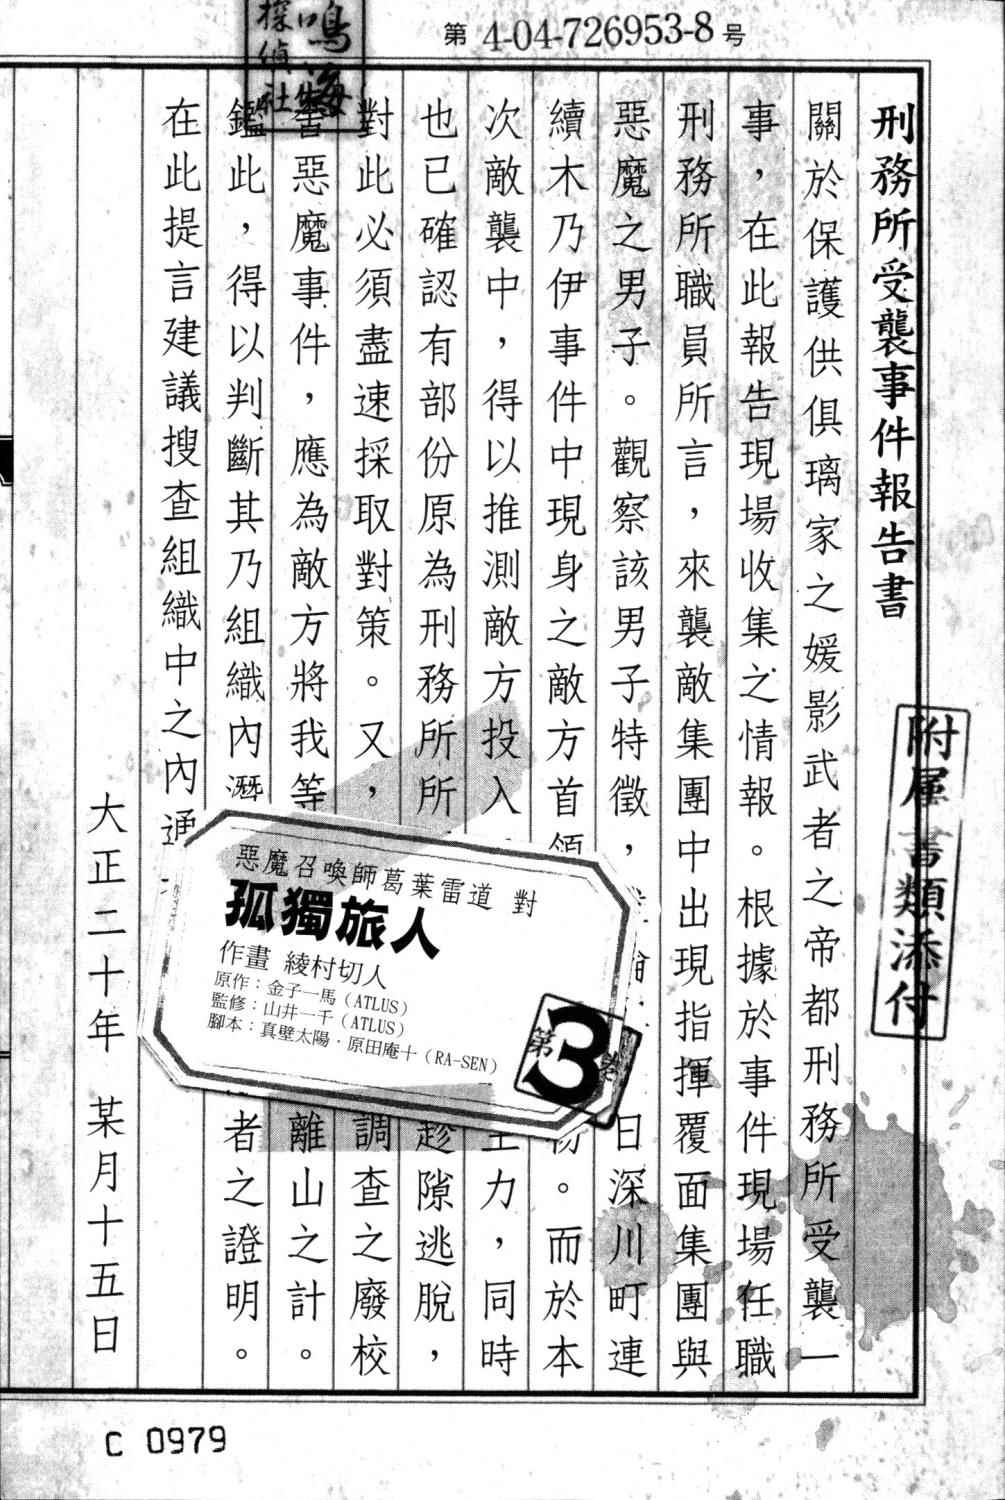 第 4-04-726953-8 号
鳴海
探偵社
刑務所受襲事件報告書
附屬書類添付
關於保護供俱璃家之媛影武者之帝都刑務所受襲一
事，在此報告現場收集之情報。根據於事件現場任職
刑務所職員所言，來襲敵集團中出現指揮覆面集團與
惡魔之男子。觀察該男子特徵，日深川町連
續木乃伊事件中現身之敵方首領。而於本
次敵襲中，得以推測敵方投入主力，同時
也已確認有部份原為刑務所所趁隙逃脫，
對此必須盡速採取對策。又，調查之廢校
舍惡魔事件，應為敵方將我等離山之計。
鑑此，得以判斷其乃組織內潛者之證明。
在此提言建議搜查組織中之內通
大正二十年 某月十五日
惡魔召喚師葛葉雷道 對
孤獨旅人
作畫 綾村切人
原作：金子一馬（ATLUS）
監修：山井一千（ATLUS）
腳本：真壁太陽・原田庵十（RA-SEN）
第3巻
C 0979